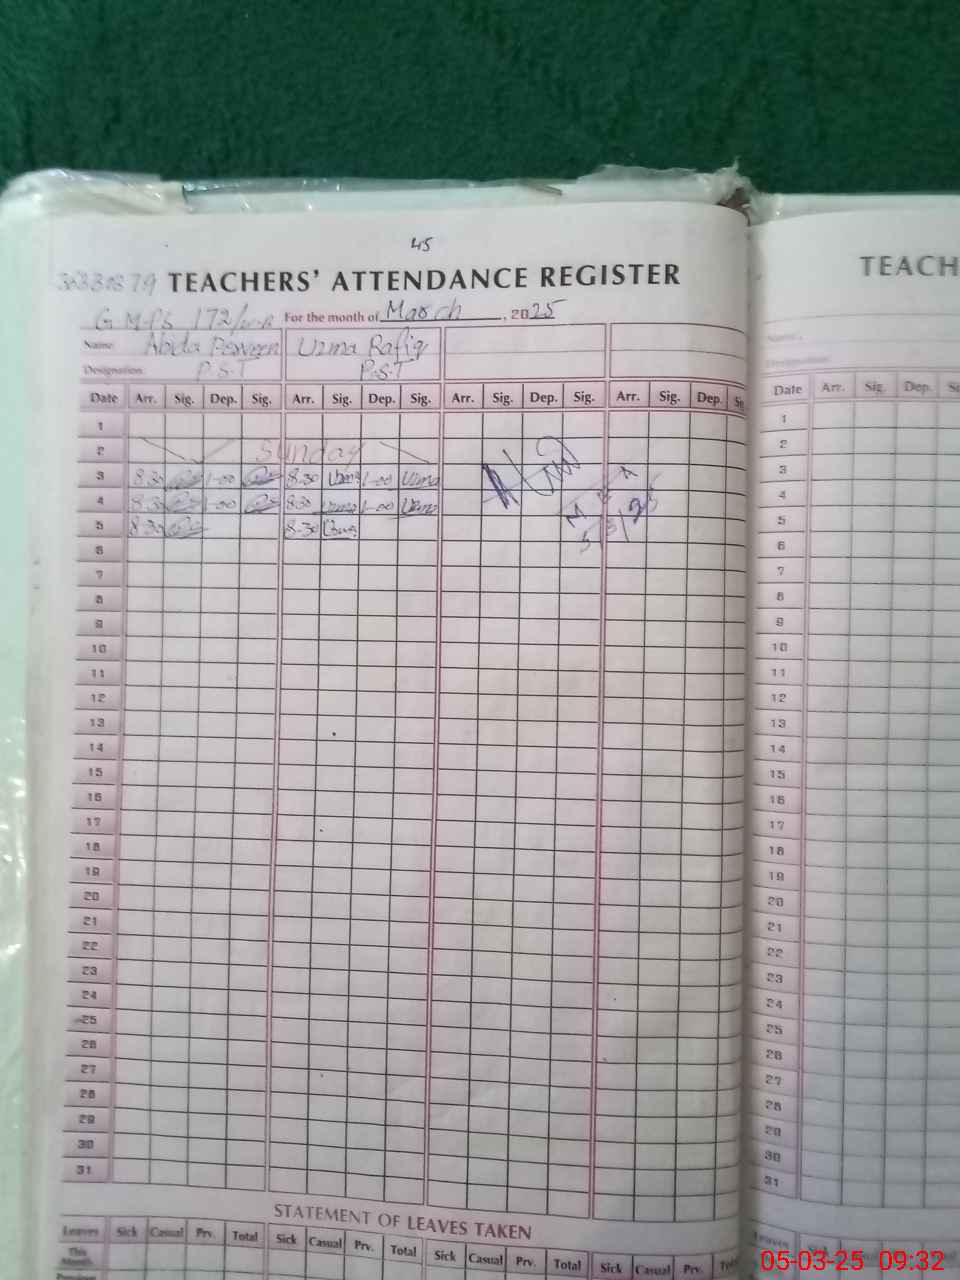 45
36330879 TEACHERS' ATTENDANCE REGISTER
G.M.P.S 172/ For the month of March, 2025
Name Abida Perveen Uzma Rafiq
Designation: P.S.T P.S.T
Date Arr. Sig. Dep. Sig. Arr. Sig. Dep. Sig. Arr. Sig. Dep. Sig. Arr. Sig. Dep. Sig.
1
2 Sunday
3 8.30 1-00 8.30 Uzma 1-00 Uzma
4 8.30 1-00 8.30 Uzma 1-00 Uzma
5 8.30 8.30
M E A
5/3/25
6
7
8
9
10
11
12
13
14
15
16
17
18
19
20
21
22
23
24
25
26
27
28
29
30
31
STATEMENT OF LEAVES TAKEN
Leaves Sick Casual Prv. Total Sick Casual Prv. Total Sick Casual Prv. Total Sick Casual Prv.
This Month
Previous
TEACH
Name
Designation
Date Arr. Sig. Dep.
1
2
3
4
5
6
7
8
9
10
11
12
13
14
15
16
17
18
19
20
21
22
23
24
25
26
27
28
29
30
31
Leaves
05-03-25 09:32